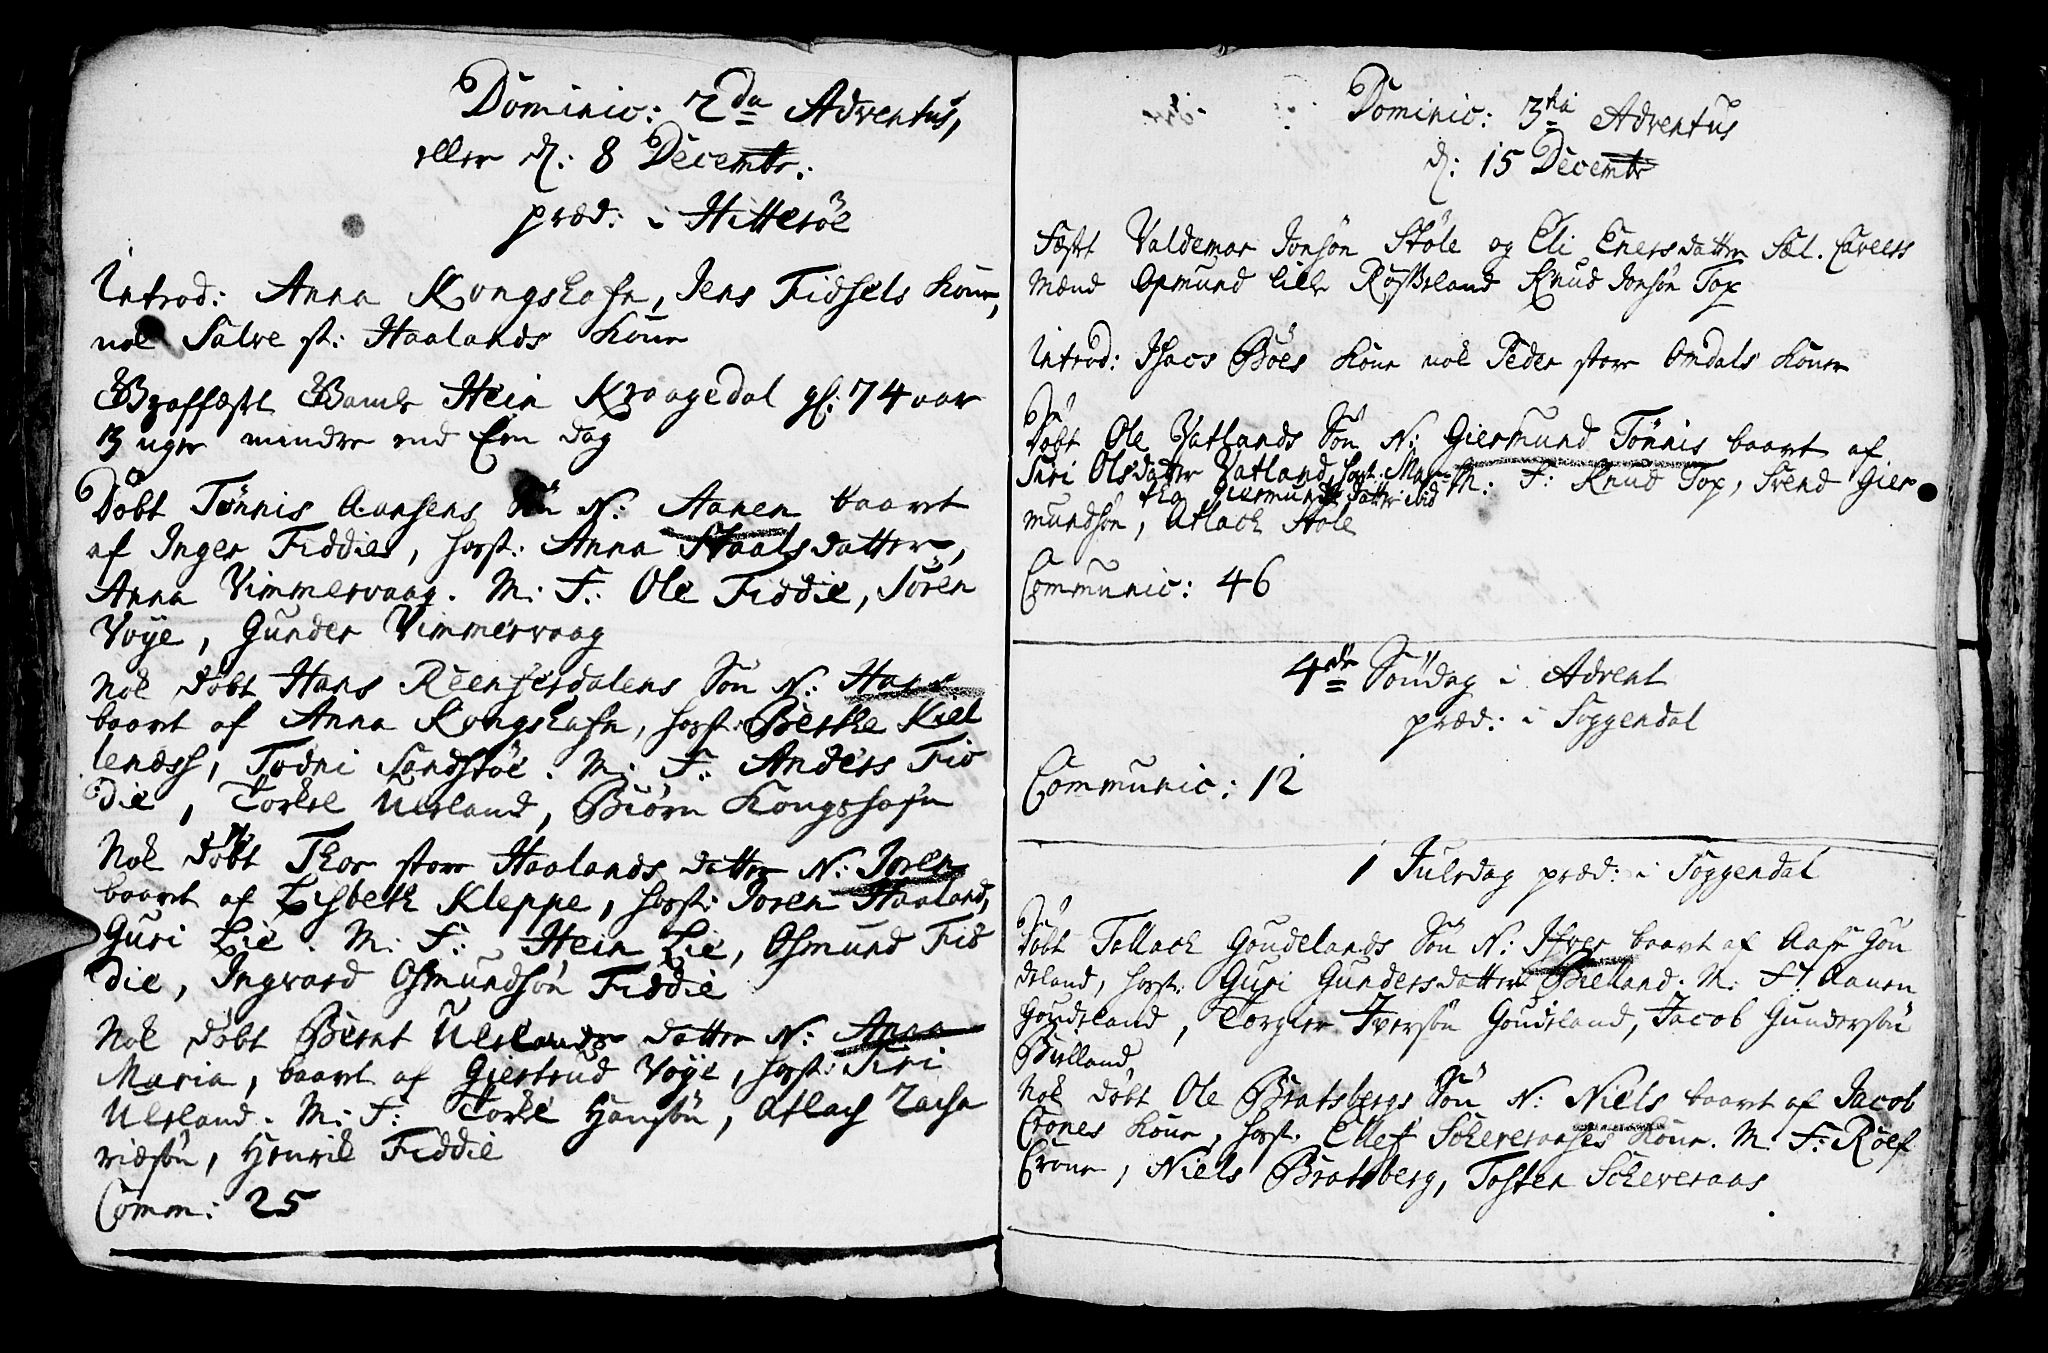 Dominic: 2da Adventus,
eller d: 8 Decembr:
præd: i Hitteröe
Introd: Anna Kongshafn, Jens Fidsels Kone,
nok Salve st: Haalands Kone
Begrafféstt Hein Kraagedal gl: 74 aar
3 uger mindre end Een dag
Döbt Tönnis Aansens Sön N: Aanen baaret
af Inger Fiddie, host: Anna Staalsdatter,
Anna Vimmervaag. M: F: Ole Fiddie, Sören
Voÿe, Gunder Vimmervaag
Nok döbt Hans Reenferdalens Sön N: Hans
baaret af Anna Kongshafn, host: Berthe Kiel
lendss, Todni Sandstöe. M: F: Anders Fid
die, Torkel Uleland, Biörn Kongshafn
Nok döbt Thor store Haalands datter N: Joren
baaret af Lisbeth Kleppe, host: Joren Haaland,
Guri Lie. M: F: Hein Lie, Osmund Fid
die, Ingvard Osmundsön Fiddie
Nok döbt Bernt Ulelands datter N: Anna
Maria, baaret af Giertrud Voÿe, host: Siri
Uleland. M: F: Torkel Hansön, Atlach Zacha
riæsön, Henrik Fiddie
Comm: 25
Dominic: 3tia Adventus
d: 15 Decembr
Fæst Valdemar Jonsön Stöle og Eli Enersdatter Sæl. Caveers
Mænd Osmund lille Rosseland Knud Jonsön Top
Introd: Isacs Böes Kone nok Peder store Omdals Kone
Döbt Ole Vatlands Sön N: Giermund Tönnis baaret af
Siri Olsdatter Vatland, host: Mar-
tha Giermunds datter ibid M: F: Knud Top, Svend Gier
mundsön, Atlach Stöle
Communic: 46
4de Söndag i Advent
præd: i Soggendal
Communic: 12
1 Juledag præd: i Soggendal
Döbt Tollach Goudelands Sön N: Ifver baaret af Aase Gou
deland, host: Guri Gundersdatter Bielland. M: F: Aanen
Goudeland, Torgier Iversön Goudeland, Jacob Gundersön
Bielland,
Nok döbt Ole Bratsbergs Sön N: Niels baaret af Jacob
Crones Kone, host: Ellef Scheveraases Kone. M: F: Roef
Crone, Niels Bratsberg, Tosten Scheveraas.